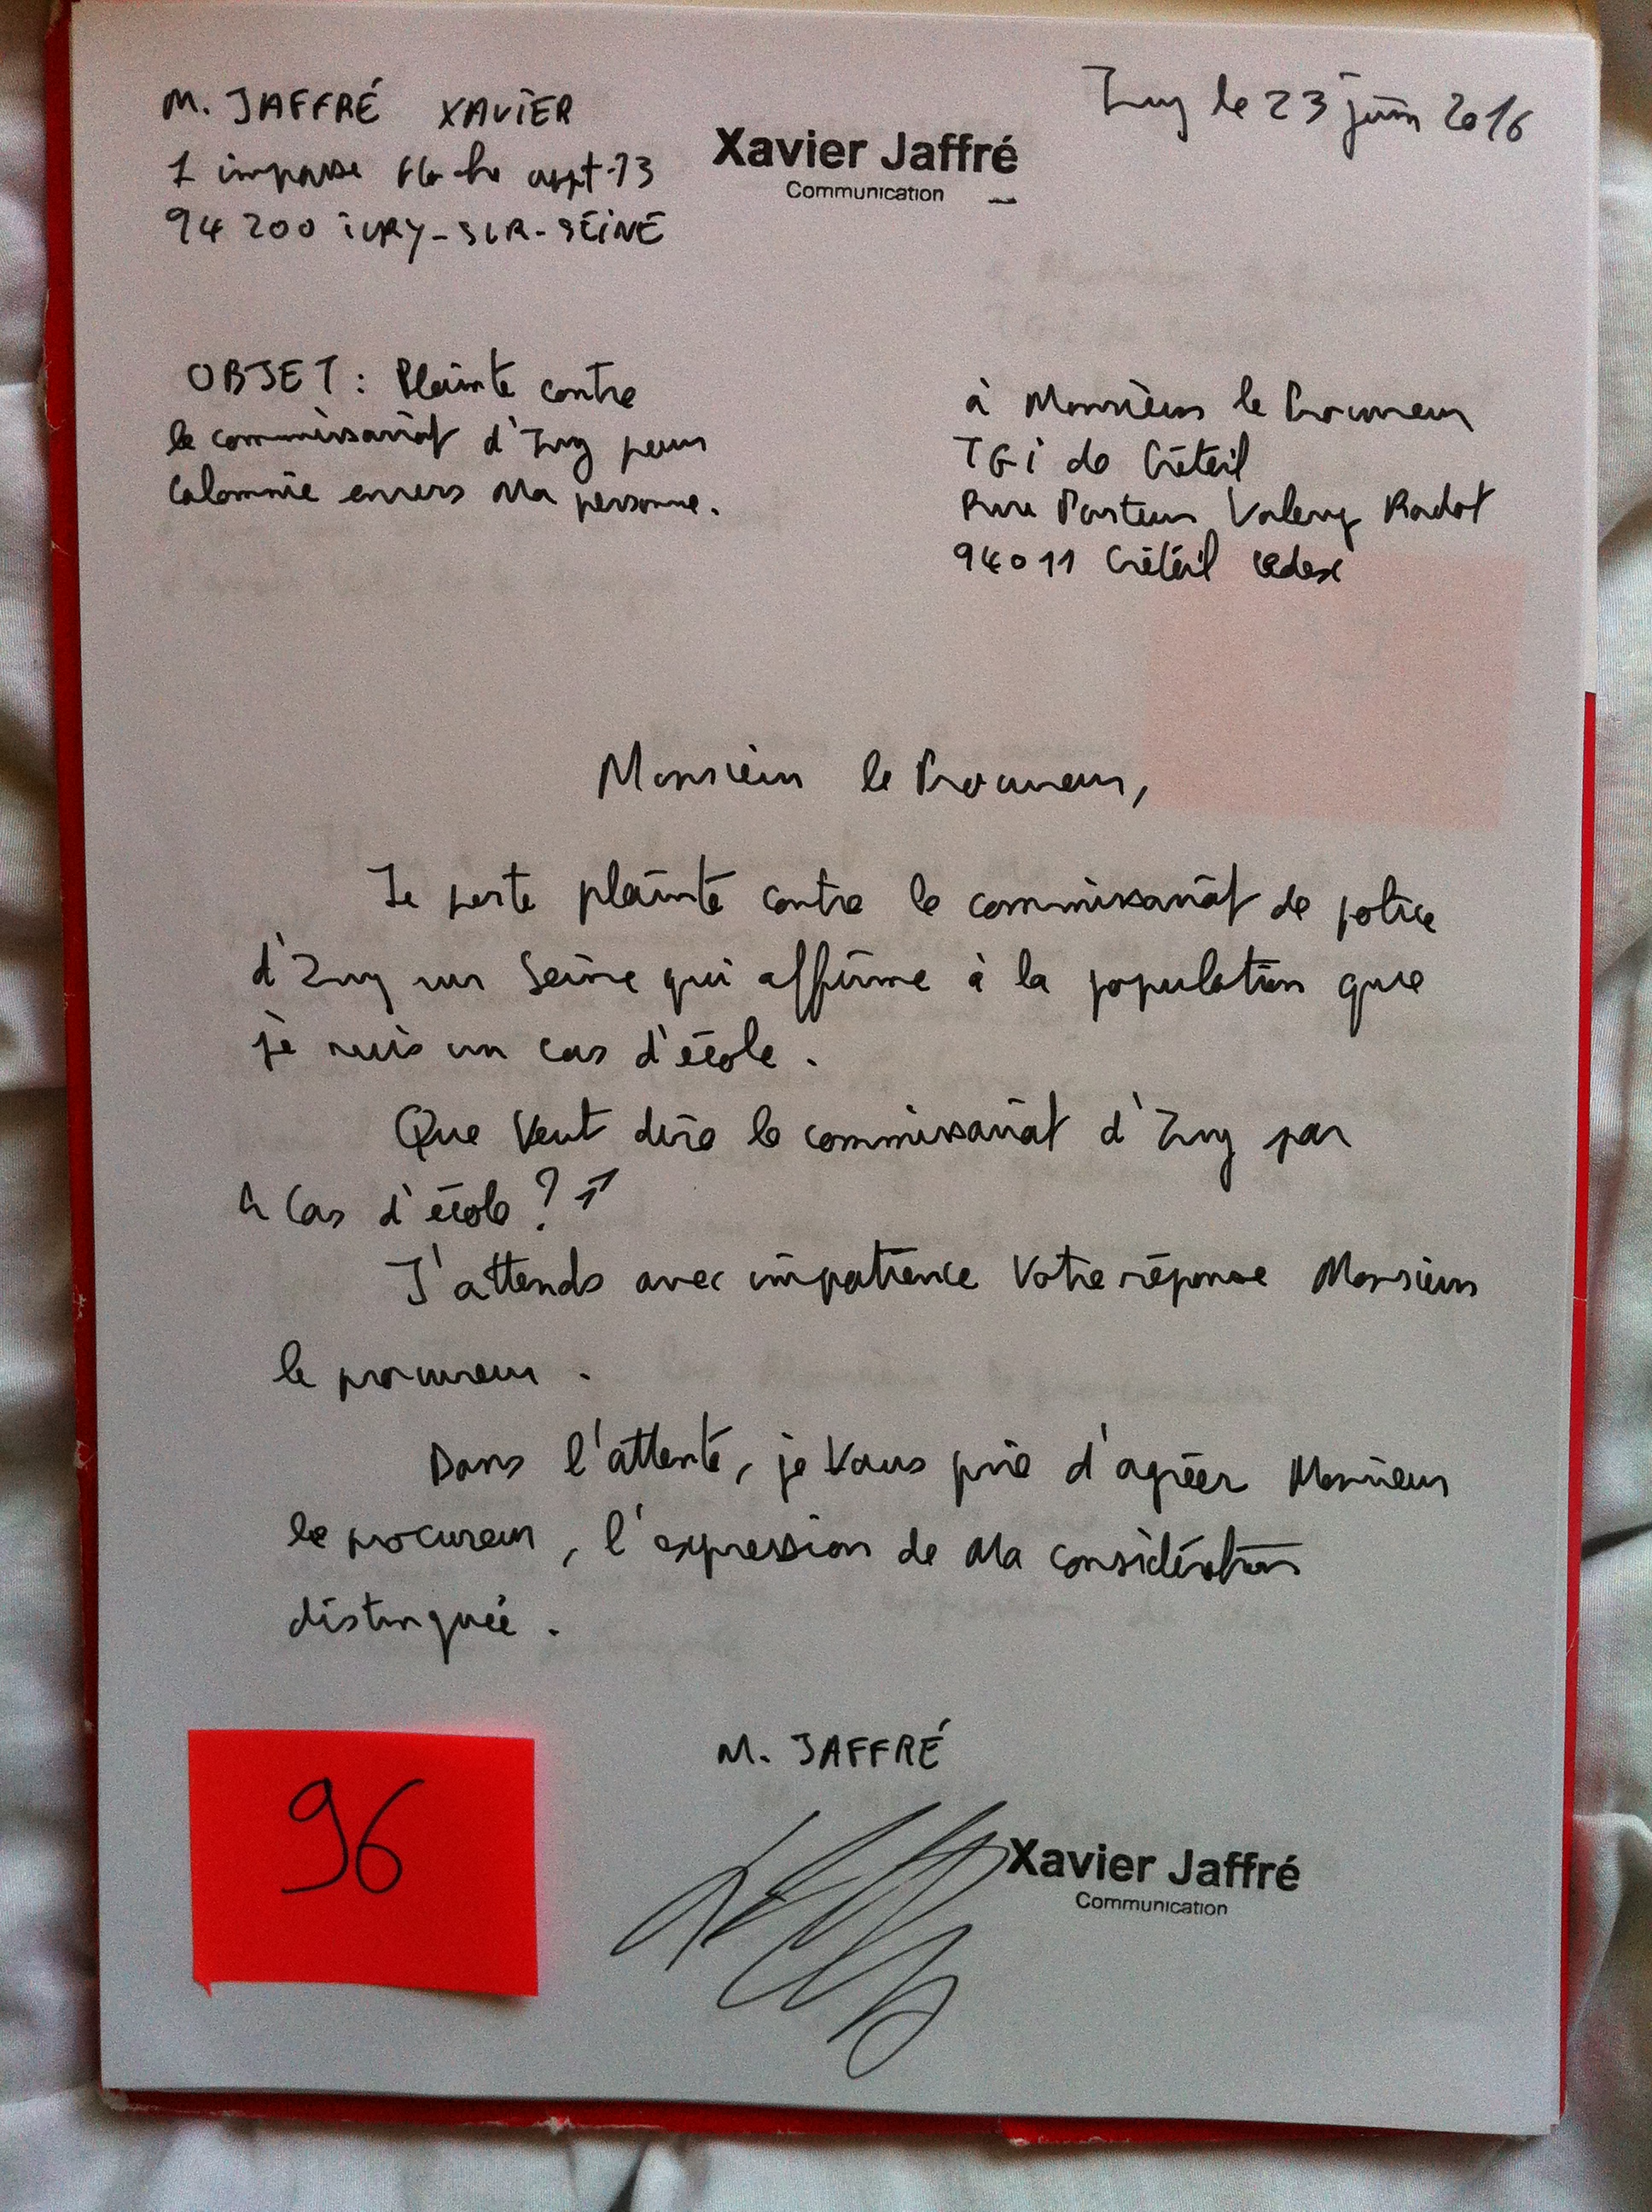 M. JAFFRÉ XAVIER
1 impasse appt 13
94 200 IVRY-SUR-SEINE
Xavier Jaffré
Communication
Ivry le 23 juin 2016
OBJET : Plainte contre
le commissariat d'Ivry pour
Calomnie envers Ma personne.
à Monsieur le Procureur
TGI de Créteil
Rue Pasteur Valery Radot
94011 Créteil cedex
Monsieur le Procureur,
Je porte plainte contre le commissariat de police
d'Ivry sur Seine qui affirme à la population que
je suis un cas d'école.
Que Veut dire le commissariat d'Ivry par
" Cas d'école ? "
J'attends avec impatience Votre réponse Monsieur
le procureur.
Dans l'attente, je Vous prie d'agréer Monsieur
le procureur, l'expression de Ma considération
distinguée.
M. JAFFRÉ
Xavier Jaffré
Communication
96